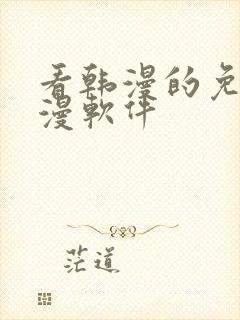 看韩漫的免
漫软件
茫道